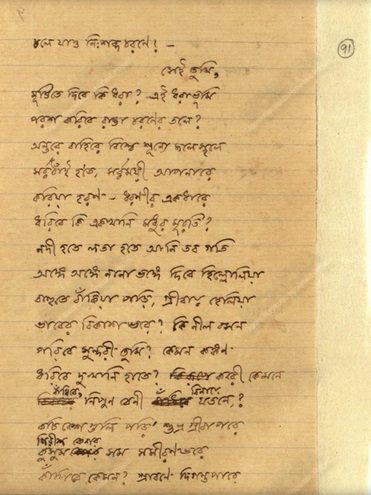 ৯১
চলে যাও নিঃশব্দ চরণে! –
সেই তুমি,
মূর্ত্তিতে দিবে কি ধরা? এই ধরাভূমি
পরশ করিবে রাঙ্গা চরণের তলে?
অন্তরে বাহিরে বিশ্বে শূন্যে জলেস্থলে
সর্ব্বঠাঁই হতে, সর্ব্বময়ী আপনারে
করিয়া হরণ – ধরণীর একধারে
ধরিবে কি একখানি মধুর মূরতি?
নদী হতে লতা হতে আনি তব গতি
অঙ্গে অঙ্গে নানা ভঙ্গে দিবে হিল্লোলিয়া
বাহুতে বাঁকিয়া পড়ি, গ্রীবায় হেলিয়া
ভাবের বিকাশ ভরে? কি নীল বসন
পরিবে সুন্দরী তুমি? কেমন কঙ্কণ
ধরিবে দুখানি হাতে? কবরী কেমনে
বাঁধিবে, নিপুণ বেণী বিনায়ে যতনে,?
কচি কেশগুলি পড়ি শুভ্র গ্রীবাপরে
শিরীষ কুসুম সম সমীরণভরে
কাঁপিবে কেমন? শ্রাবণে দিগন্তপারে